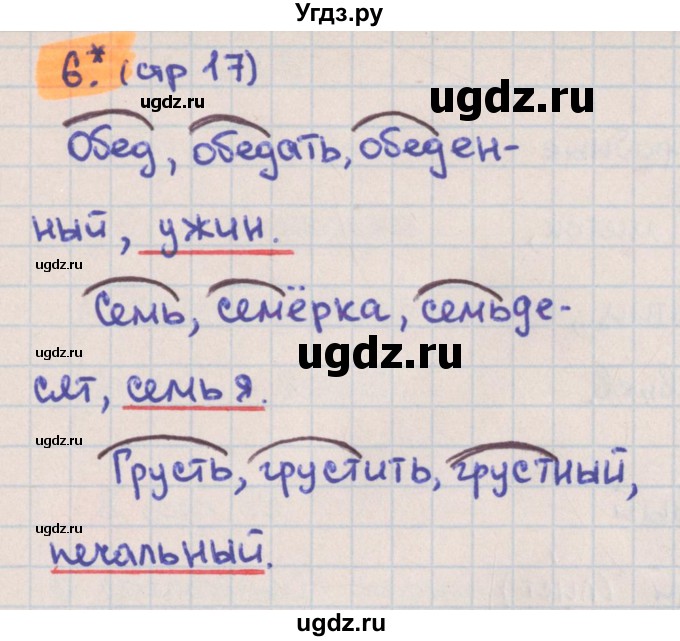 Угдз.ру
6.* (стр 17)
ugdz.ru
ugdz.ru
Обед, обедать, обеден-
ный, ужин.
ugdz.ru
Семь, семёрка, семьде-
ugdz.ru
ugdz.ru
сят, семья.
ugdz.ru
Грусть, грустить, грустный,
ugdz.ru
печальный.
ugdz.ru